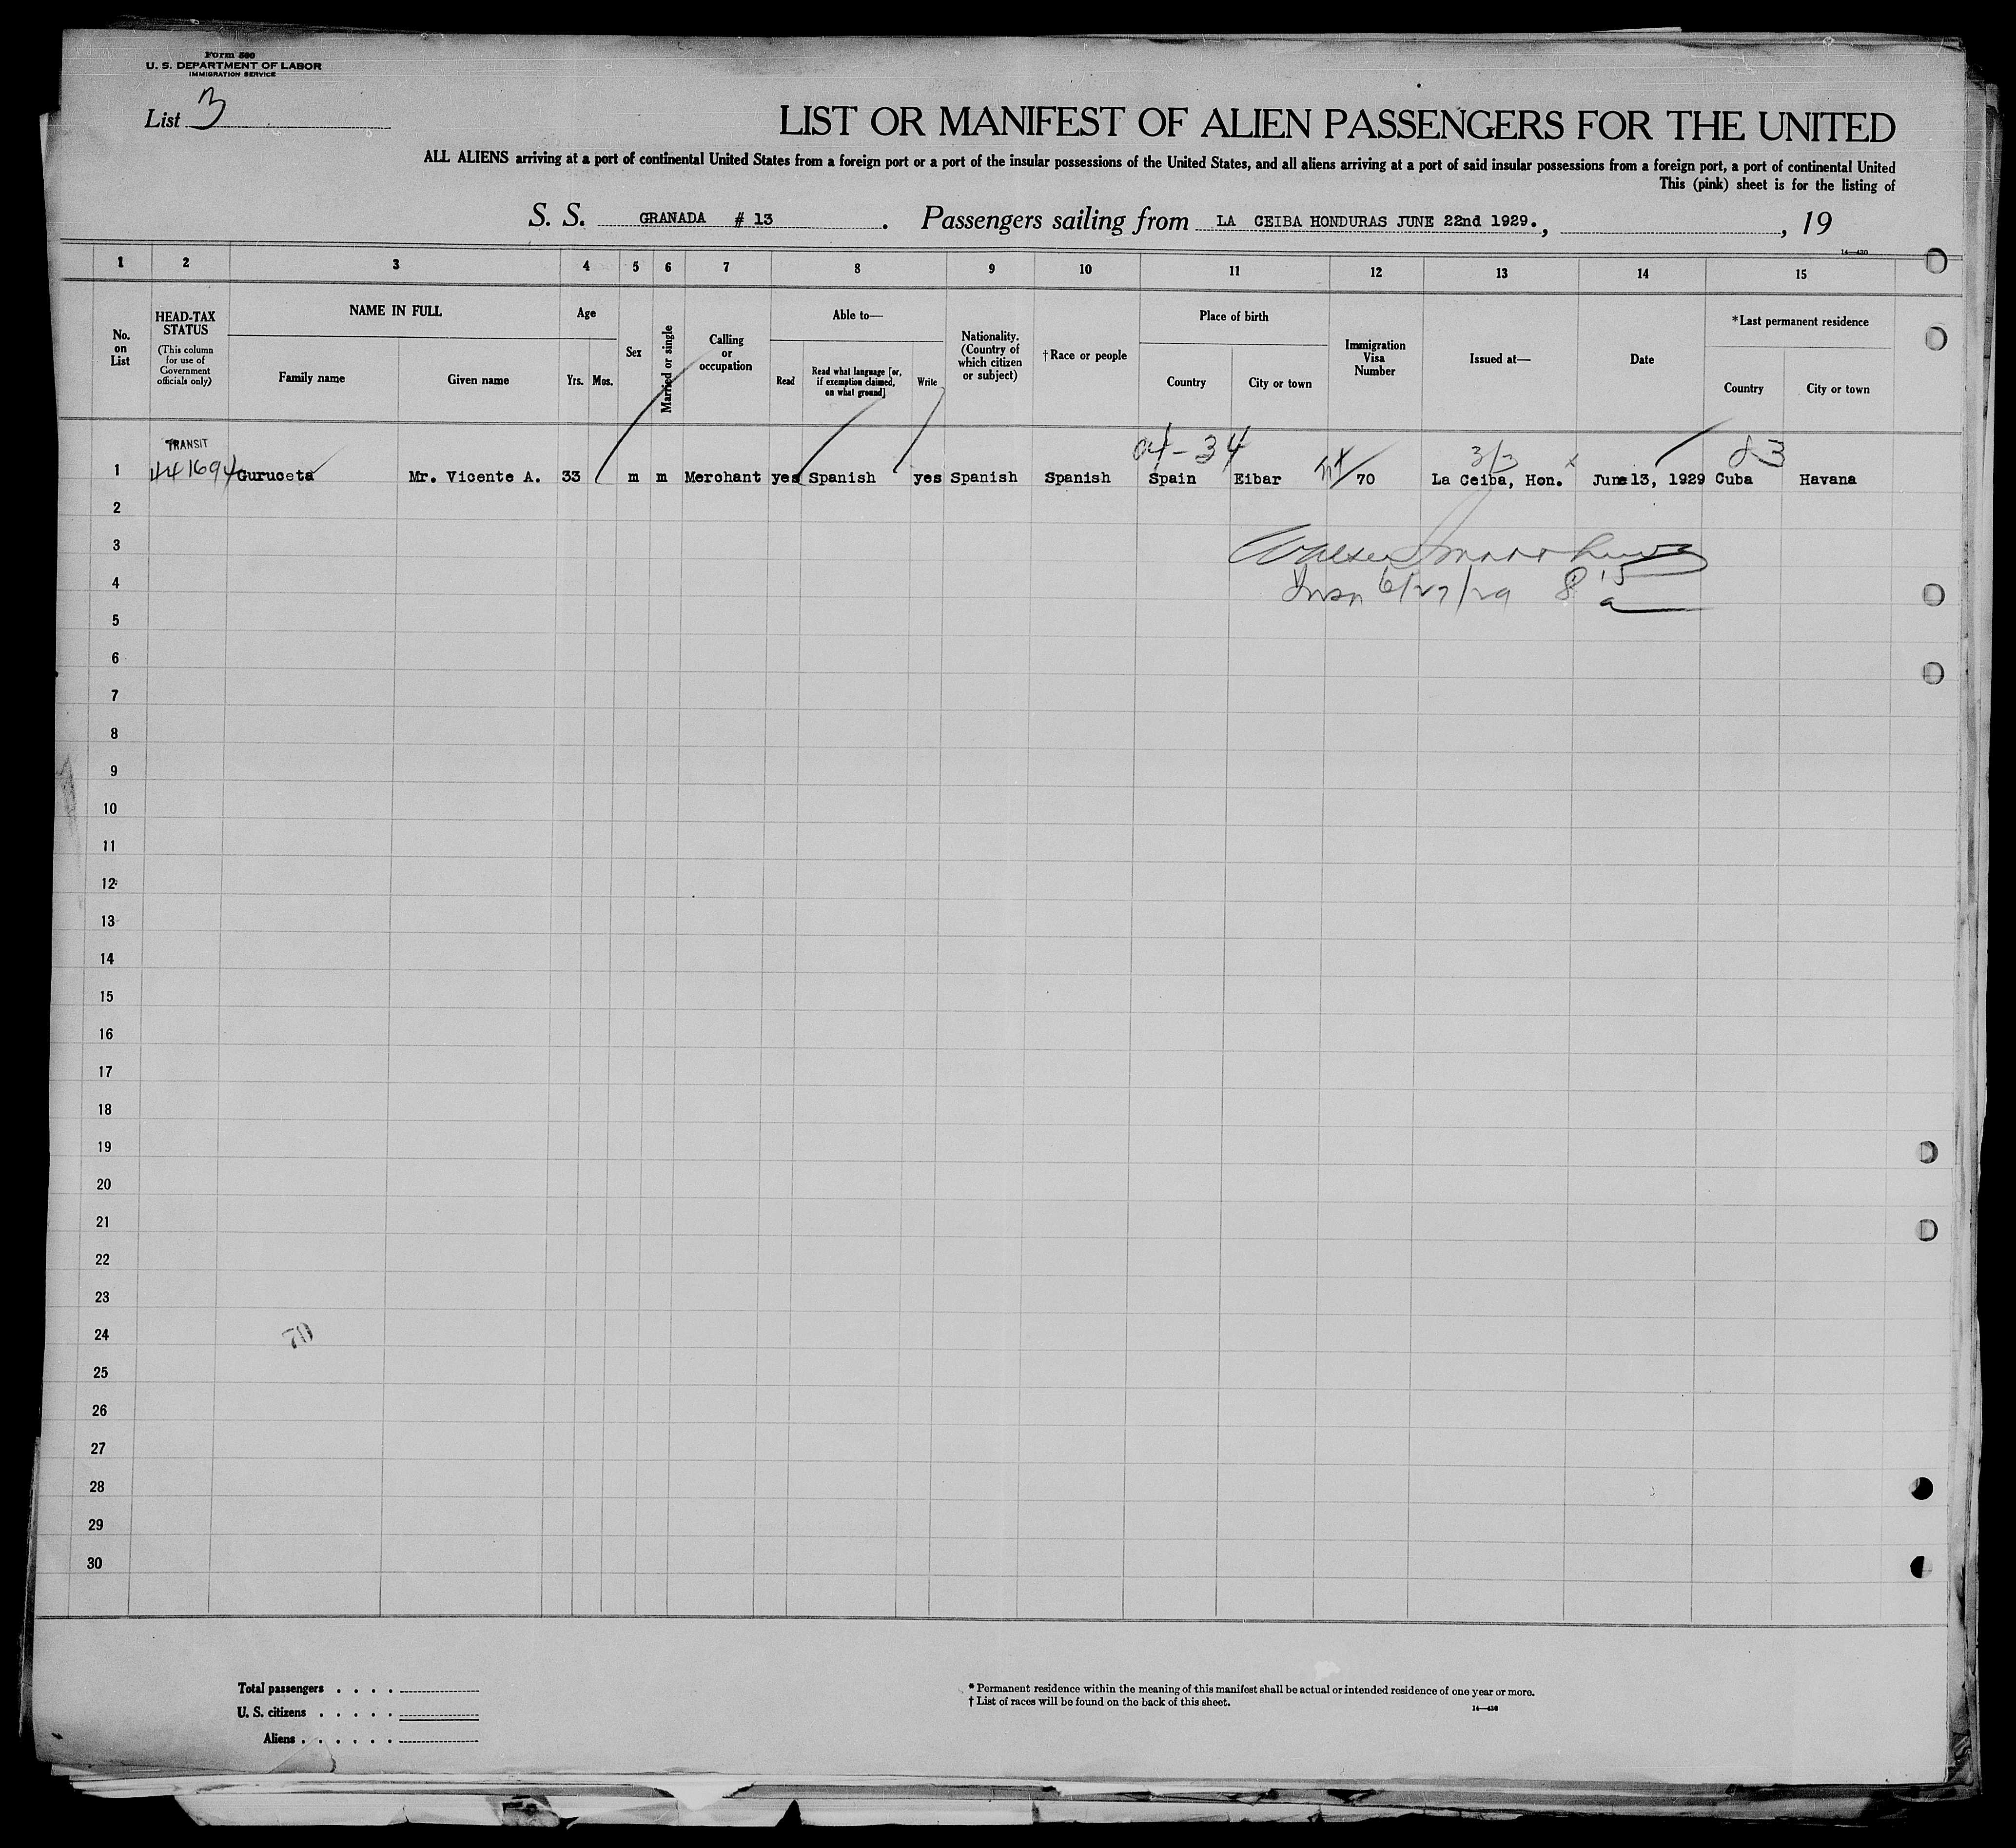 Form 500
U. S. DEPARTMENT OF LABOR
IMMIGRATION SERVICE
List 3
LIST OR MANIFEST OF ALIEN PASSENGERS FOR THE UNITED
ALL ALIENS arriving at a port of continental United States from a foreign port or a port of the insular possessions of the United States, and all aliens arriving at a port of said insular possessions from a foreign port, a port of continental United
This (pink) sheet is for the listing of
S. S. GRANADA # 13 . Passengers sailing from LA CEIBA HONDURAS JUNE 22nd 1929. , , 19
14—430
1 2 3 4 5 6 7 8 9 10 11 12 13 14 15
No. on List
HEAD-TAX STATUS
(This column for use of Government officials only)
NAME IN FULL
Family name Given name
Age
Yrs. Mos.
Sex
Married or single
Calling or occupation
Able to—
Read
Read what language [or, if exemption claimed, on what ground]
Write
Nationality. (Country of which citizen or subject)
†Race or people
Place of birth
Country City or town
Immigration Visa Number
Issued at—
Date
*Last permanent residence
Country City or town
TRANSIT
441694
1 Guruceta Mr. Vicente A. 33 m m Merchant yes Spanish yes Spanish Spanish Spain Eibar 70 La Ceiba, Hon. June 13, 1929 Cuba Havana
3/3
2
3
4
6/27/29
5
6
7
8
9
10
11
12
13
14
15
16
17
18
19
20
21
22
23
24
70
25
26
27
28
29
30
Total passengers . . . .
U. S. citizens . . . . .
Aliens . . . . . .
* Permanent residence within the meaning of this manifest shall be actual or intended residence of one year or more.
† List of races will be found on the back of this sheet.
14—430